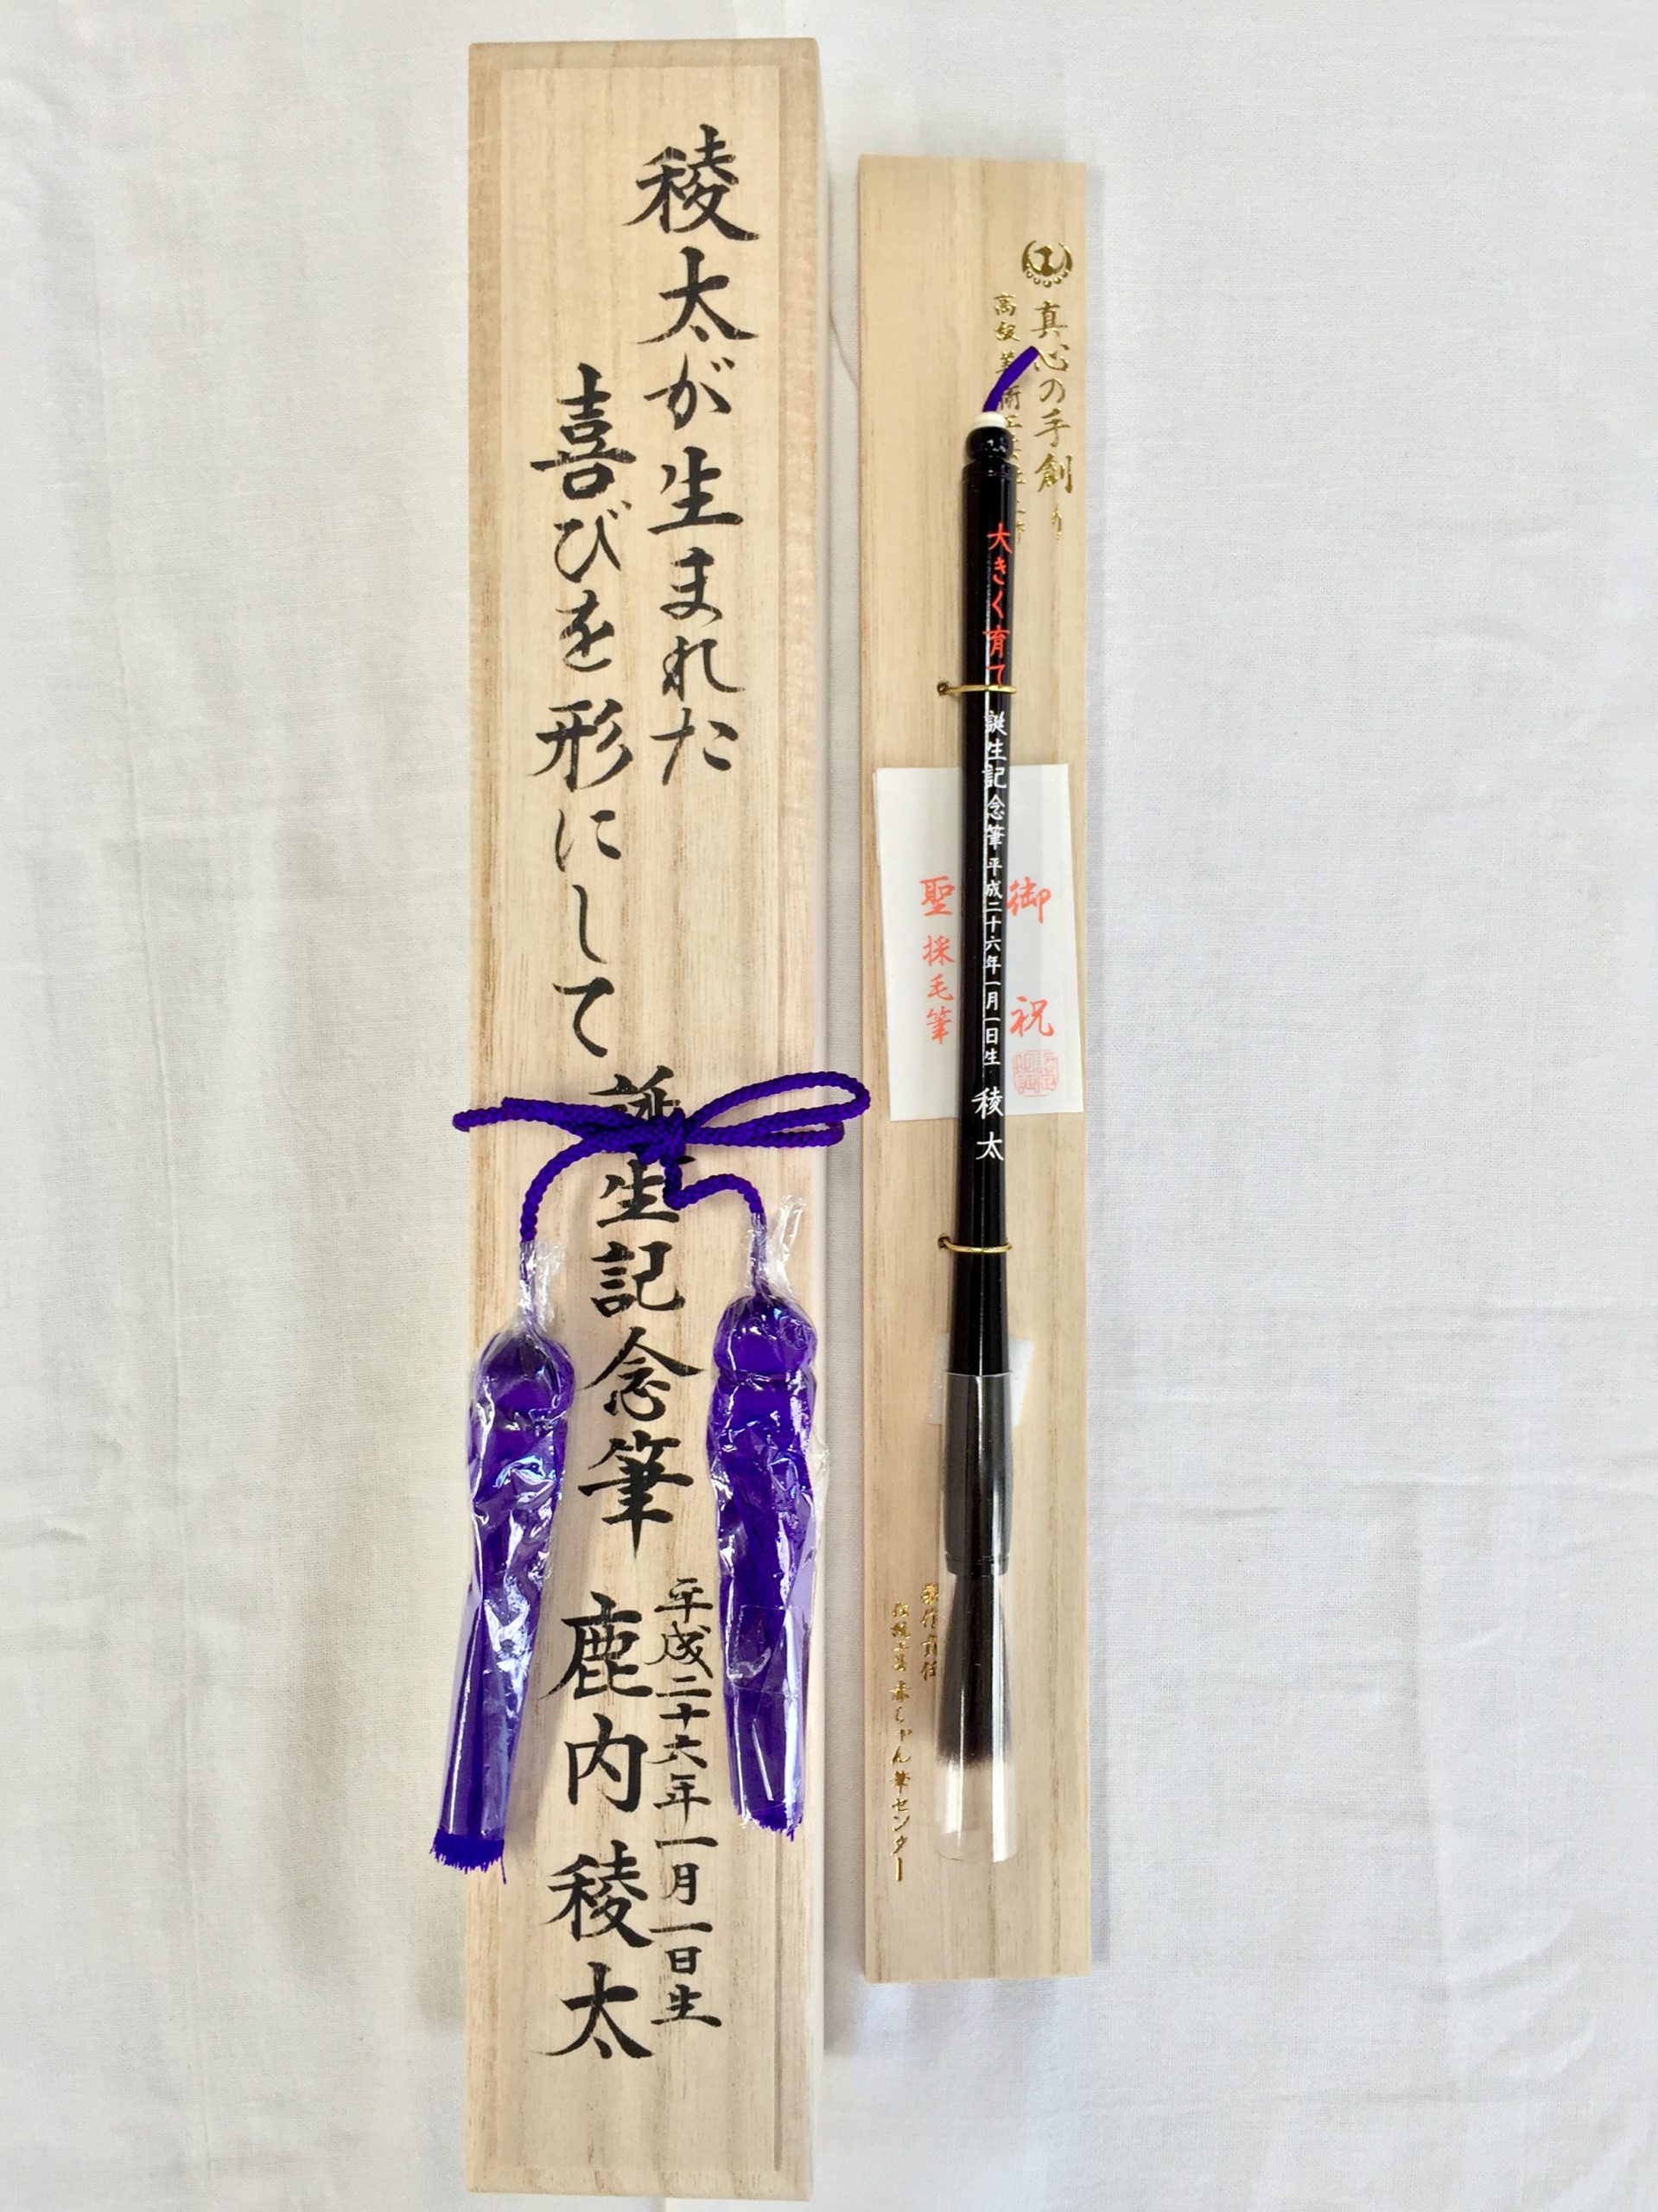 稜太が生まれた
喜びを形にして
誕生記念筆
平成二十六年一月一日生
鹿内稜太
真心の手創り
高級美術工芸
大きく育て
誕生記念筆平成二十六年一月一日生 稜太
御祝
聖採毛筆
製作責任
伝統工芸 赤ちゃん筆センター